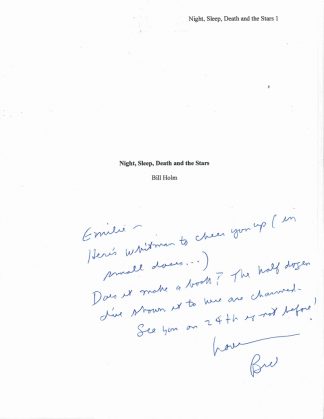 Night, Sleep, Death and the Stars 1
Night, Sleep, Death and the Stars
Bill Holm
Emilie –
Here's Whitman to cheer you up (in
small doses...)
Does it make a book? The half dozen
I've shown it to here are charmed.
See you on 24th if not before!
Love
Bill